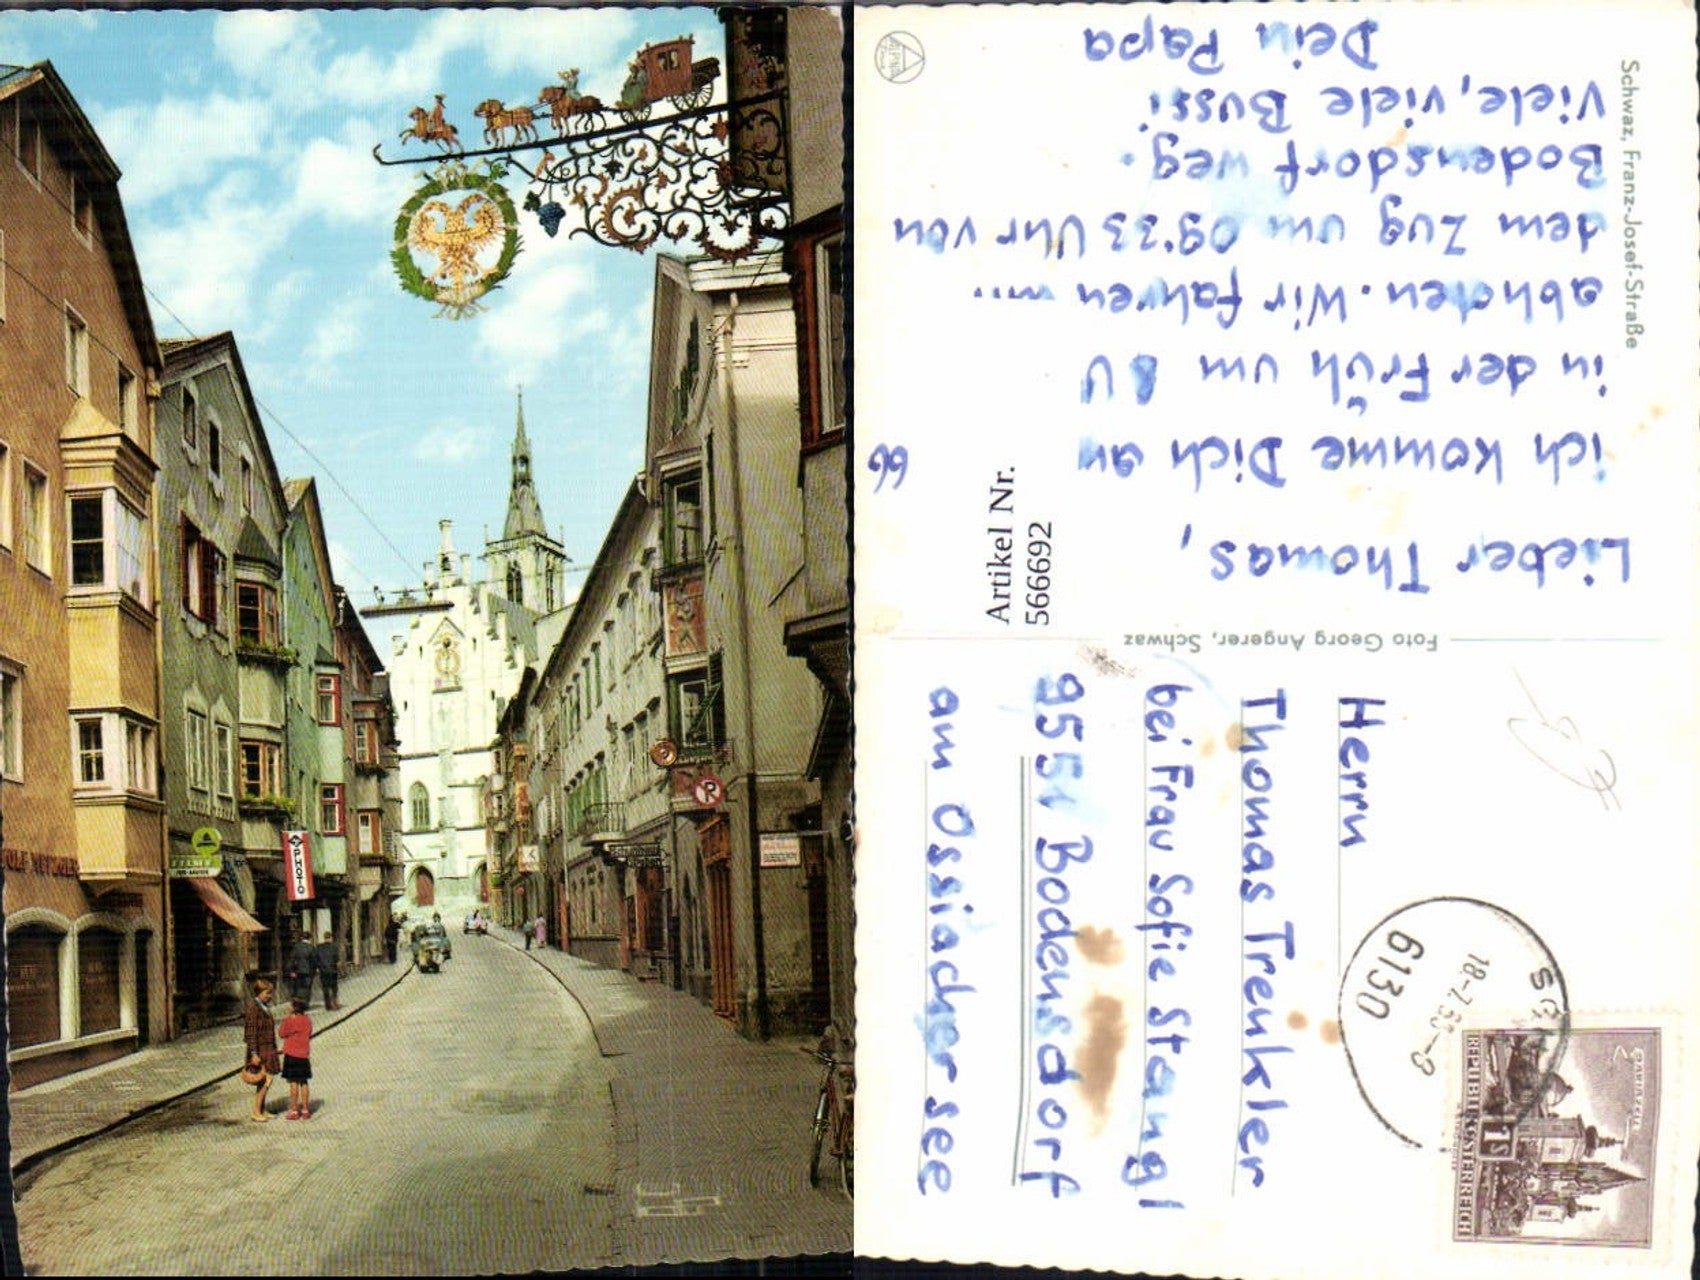 PHOTO
Lieber Thomas,
ich komme Dich am
in der Früh um 8 U
abholen. Wir fahren mit
dem Zug um 09'33 Uhr von
Bodensdorf weg.
Viele, viele Bussi
Dein Papa
66
Schwaz, Franz-Josef-Straße
Foto Georg Angerer, Schwaz
Artikel Nr.
566692
Herrn
Thomas Trenkler
bei Frau Sofie Stangl
9551 Bodensdorf
am Ossiacher see
6130
REPUBLIK ÖSTERREICH
1 S
MARIAZELL